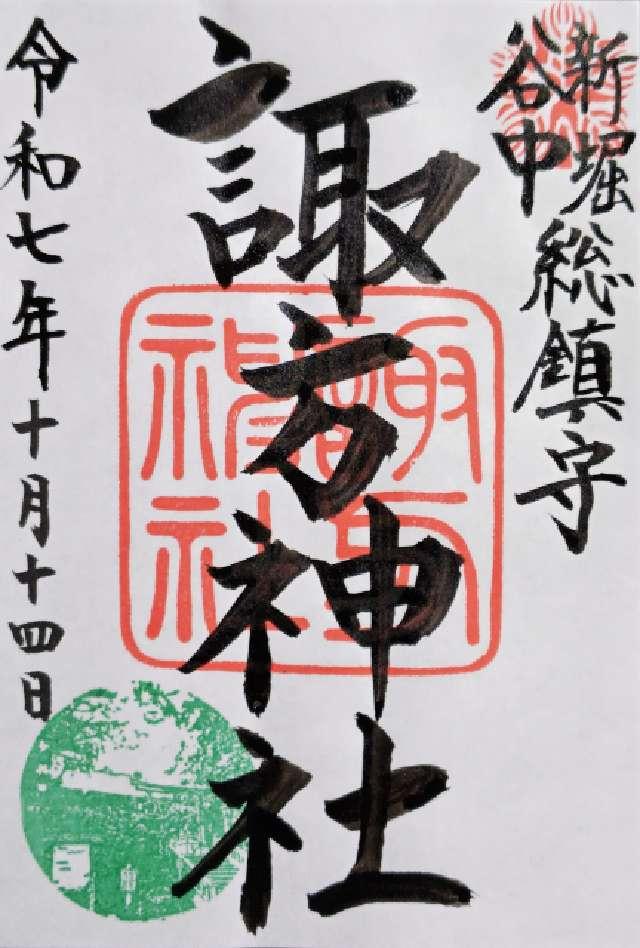 新堀
谷中
総鎮守
諏方神社
諏方神社
令和七年十月十四日